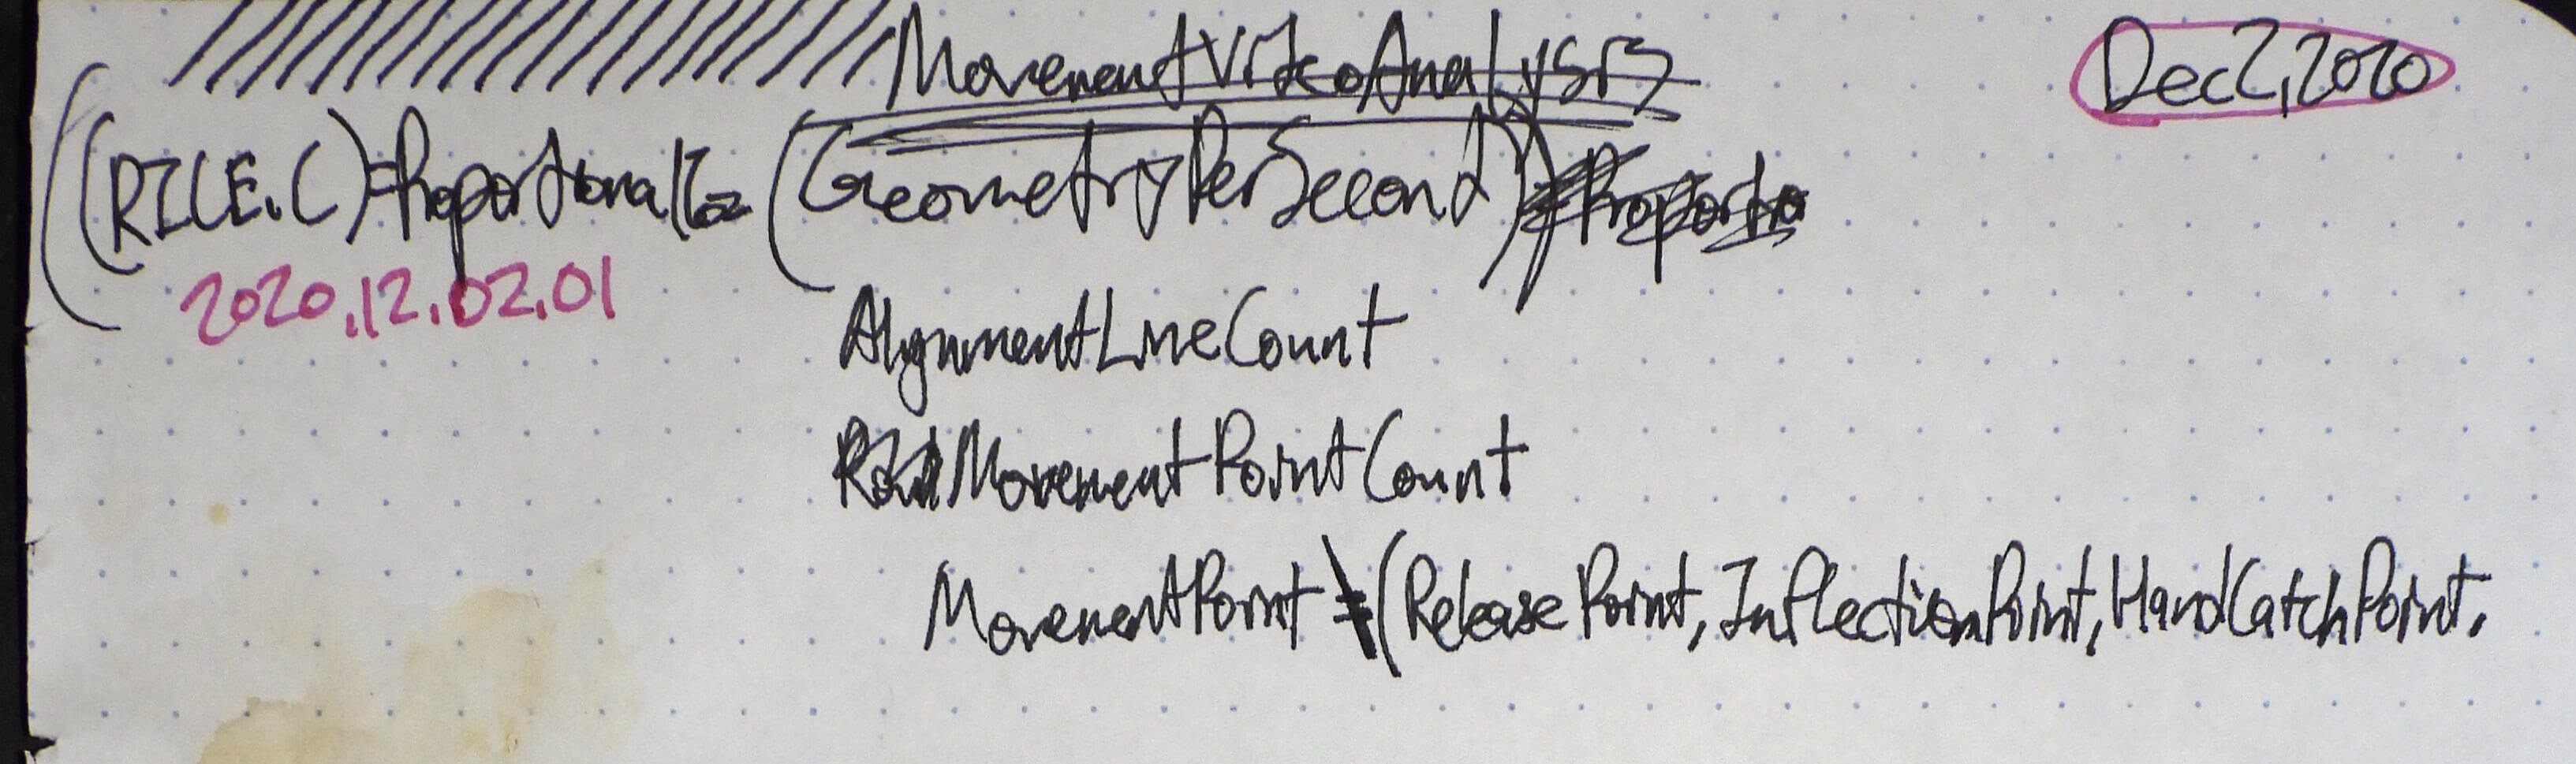 MovementVideoAnalysis
Dec2,2020
((RICE.C)=ProportionalTo(GeometryPerSecond))
2020.12.02.01
AlignmentLineCount
MovementPointCount
MovementPoint=(ReleasePoint,InflectionPoint,HandCatchPoint,